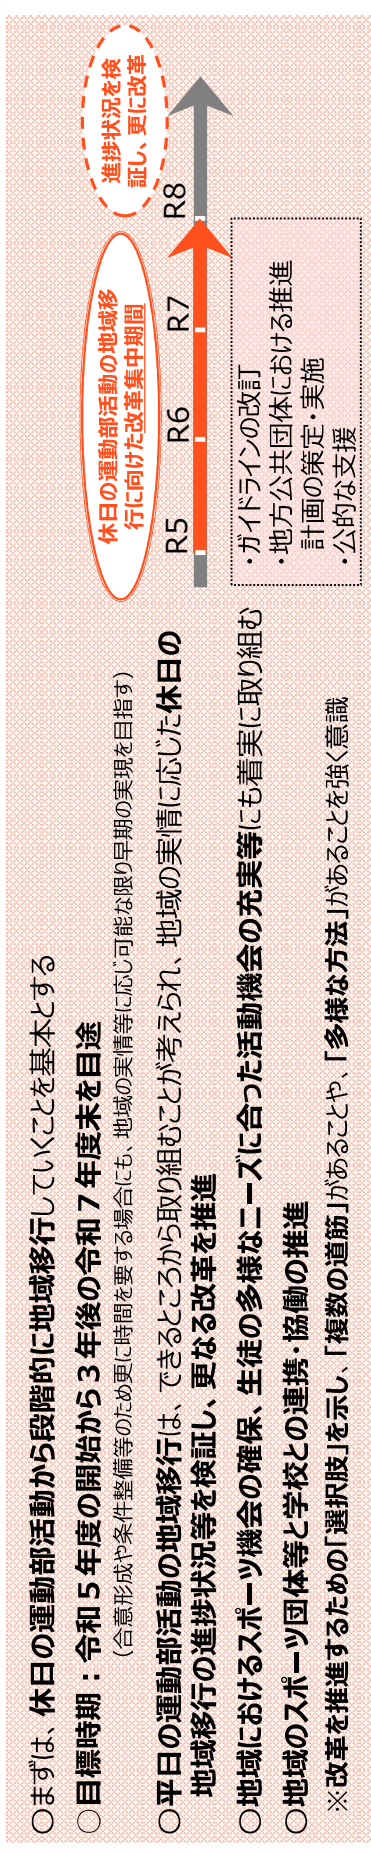 〇まずは、休日の運動部活動から段階的に地域移行していくことを基本とする
〇目標時期：令和５年度の開始から３年後の令和７年度末を目途
（合意形成や条件整備等のため更に時間を要する場合にも、地域の実情等に応じ可能な限り早期の実現を目指す）
〇平日の運動部活動の地域移行は、できるところから取り組むことが考えられ、地域の実情に応じた休日の
地域移行の進捗状況等を検証し、更なる改革を推進
〇地域におけるスポーツ機会の確保、生徒の多様なニーズに合った活動機会の充実等にも着実に取り組む
〇地域のスポーツ団体等と学校との連携・協働の推進
※改革を推進するための「選択肢」を示し、「複数の道筋」があることや、「多様な方法」があることを強く意識
休日の運動部活動の地域移
行に向けた改革集中期間
進捗状況を検
証し、更に改革
R5 R6 R7 R8
・ガイドラインの改訂
・地方公共団体における推進
計画の策定・実施
・公的な支援